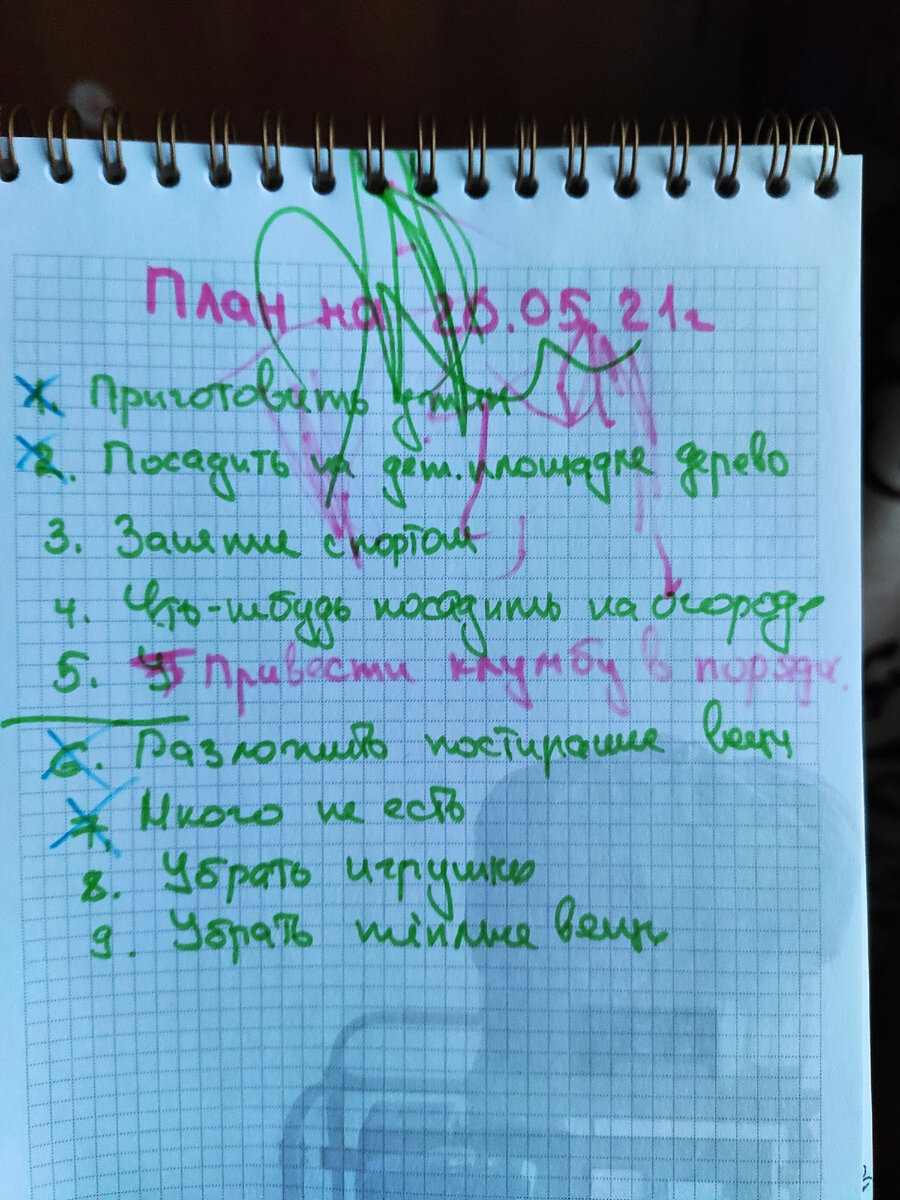 План на 20.05.21г
1. Приготовить ужин
2. Посадить на дет. площадке дерево
3. Занятие спортом
4. Что-нибудь посадить на огороде
5. Привести клумбу в порядк.
6. Разложить постиранные вещи
7. Много не есть
8. Убрать игрушки
9. Убрать тёплые вещи